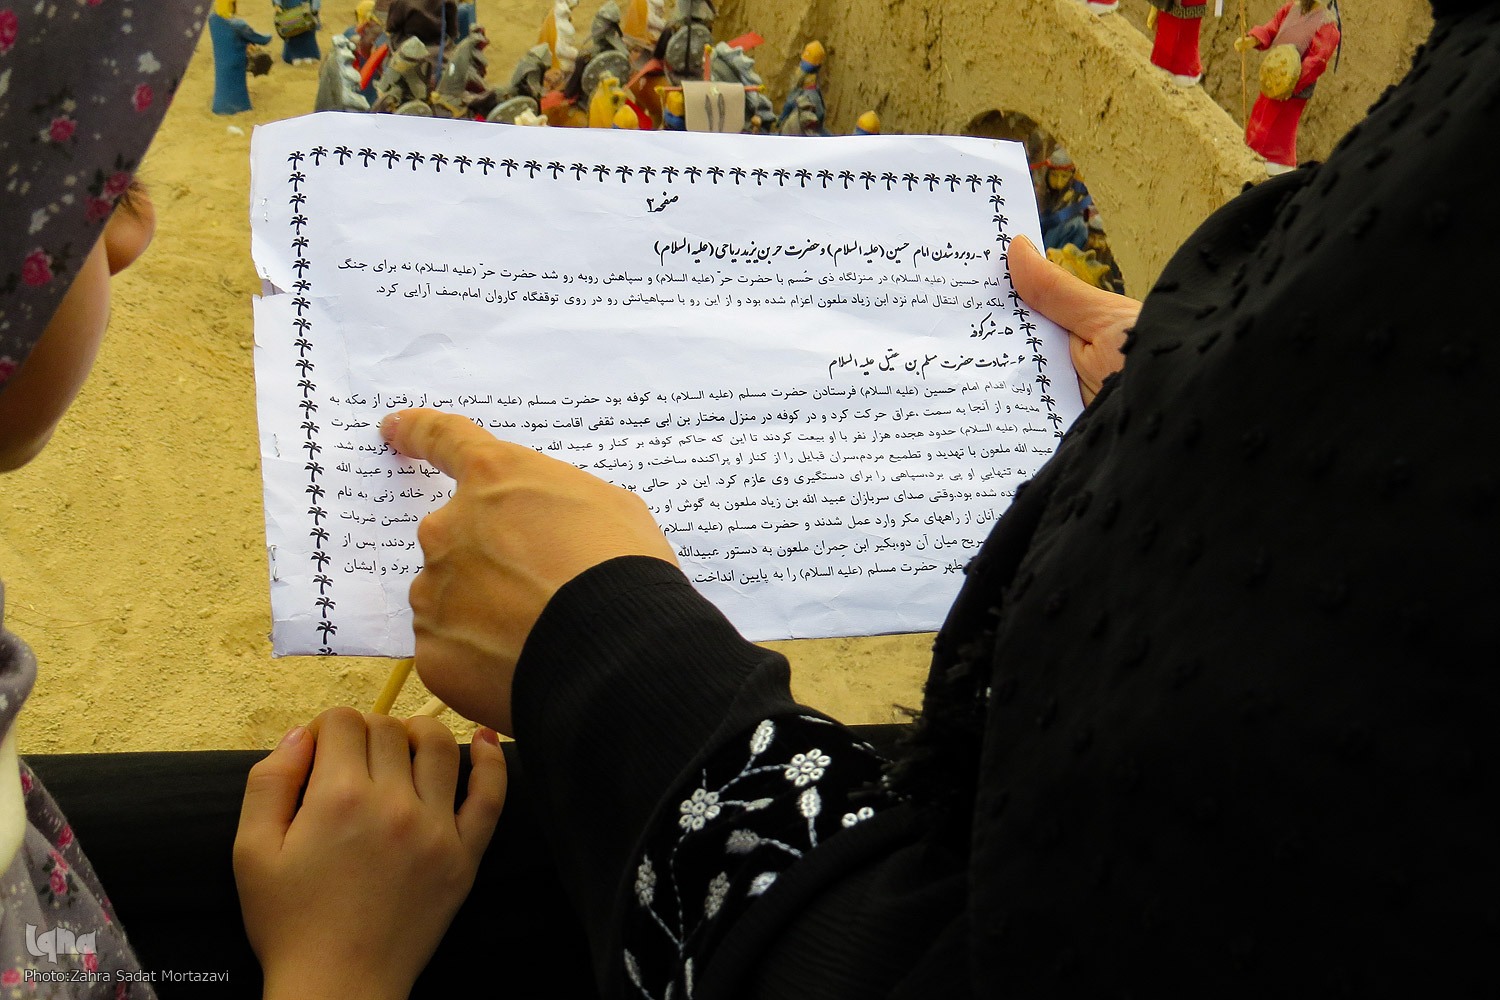 صفحه۲
۴-روبرو شدن امام حسین (علیه السلام) و حضرت حر بن یزید ریاحی (علیه السلام)
امام حسین (علیه السلام) در منزلگاه ذی حُسم با حضرت حرّ (علیه السلام) و سپاهش روبه رو شد حضرت حرّ (علیه السلام) نه برای جنگ
بلکه برای انتقال امام نزد ابن زیاد ملعون اعزام شده بود و از این رو با سپاهیانش رو در روی توقفگاه کاروان امام،صف آرایی کرد.
۵-شهر کوفه
۶-شهادت حضرت مسلم بن عقیل علیه السلام
اولین اقدام امام حسین (علیه السلام) فرستادن حضرت مسلم (علیه السلام) به کوفه بود حضرت مسلم (علیه السلام) پس از رفتن از مکه به
مدینه و از آنجا به سمت ،عراق حرکت کرد و در کوفه در منزل مختار بن ابی عبیده ثقفی اقامت نمود. مدت حضرت
مسلم (علیه السلام) حدود هجده هزار نفر با او بیعت کردند تا این که حاکم کوفه بر کنار و عبید الله بن برگزیده شد.
عبید الله ملعون با تهدید و تطمیع مردم،سران قبایل را از کنار او پراکنده ساخت، و زمانیکه تنها شد و عبید الله
به تنهایی او پی برد،سپاهی را برای دستگیری وی عازم کرد. این در حالی بود در خانه زنی به نام
شده بود.وقتی صدای سربازان عبید الله بن زیاد ملعون به گوش او دشمن ضربات
آنان از راههای مکر وارد عمل شدند و حضرت مسلم (علیه السلام) بردند، پس از
میان آن دو،بکیر ابن حِمران ملعون به دستور عبیدالله برد و ایشان
حضرت مسلم (علیه السلام) را به پایین انداخت.
Iqna
Photo:Zahra Sadat Mortazavi